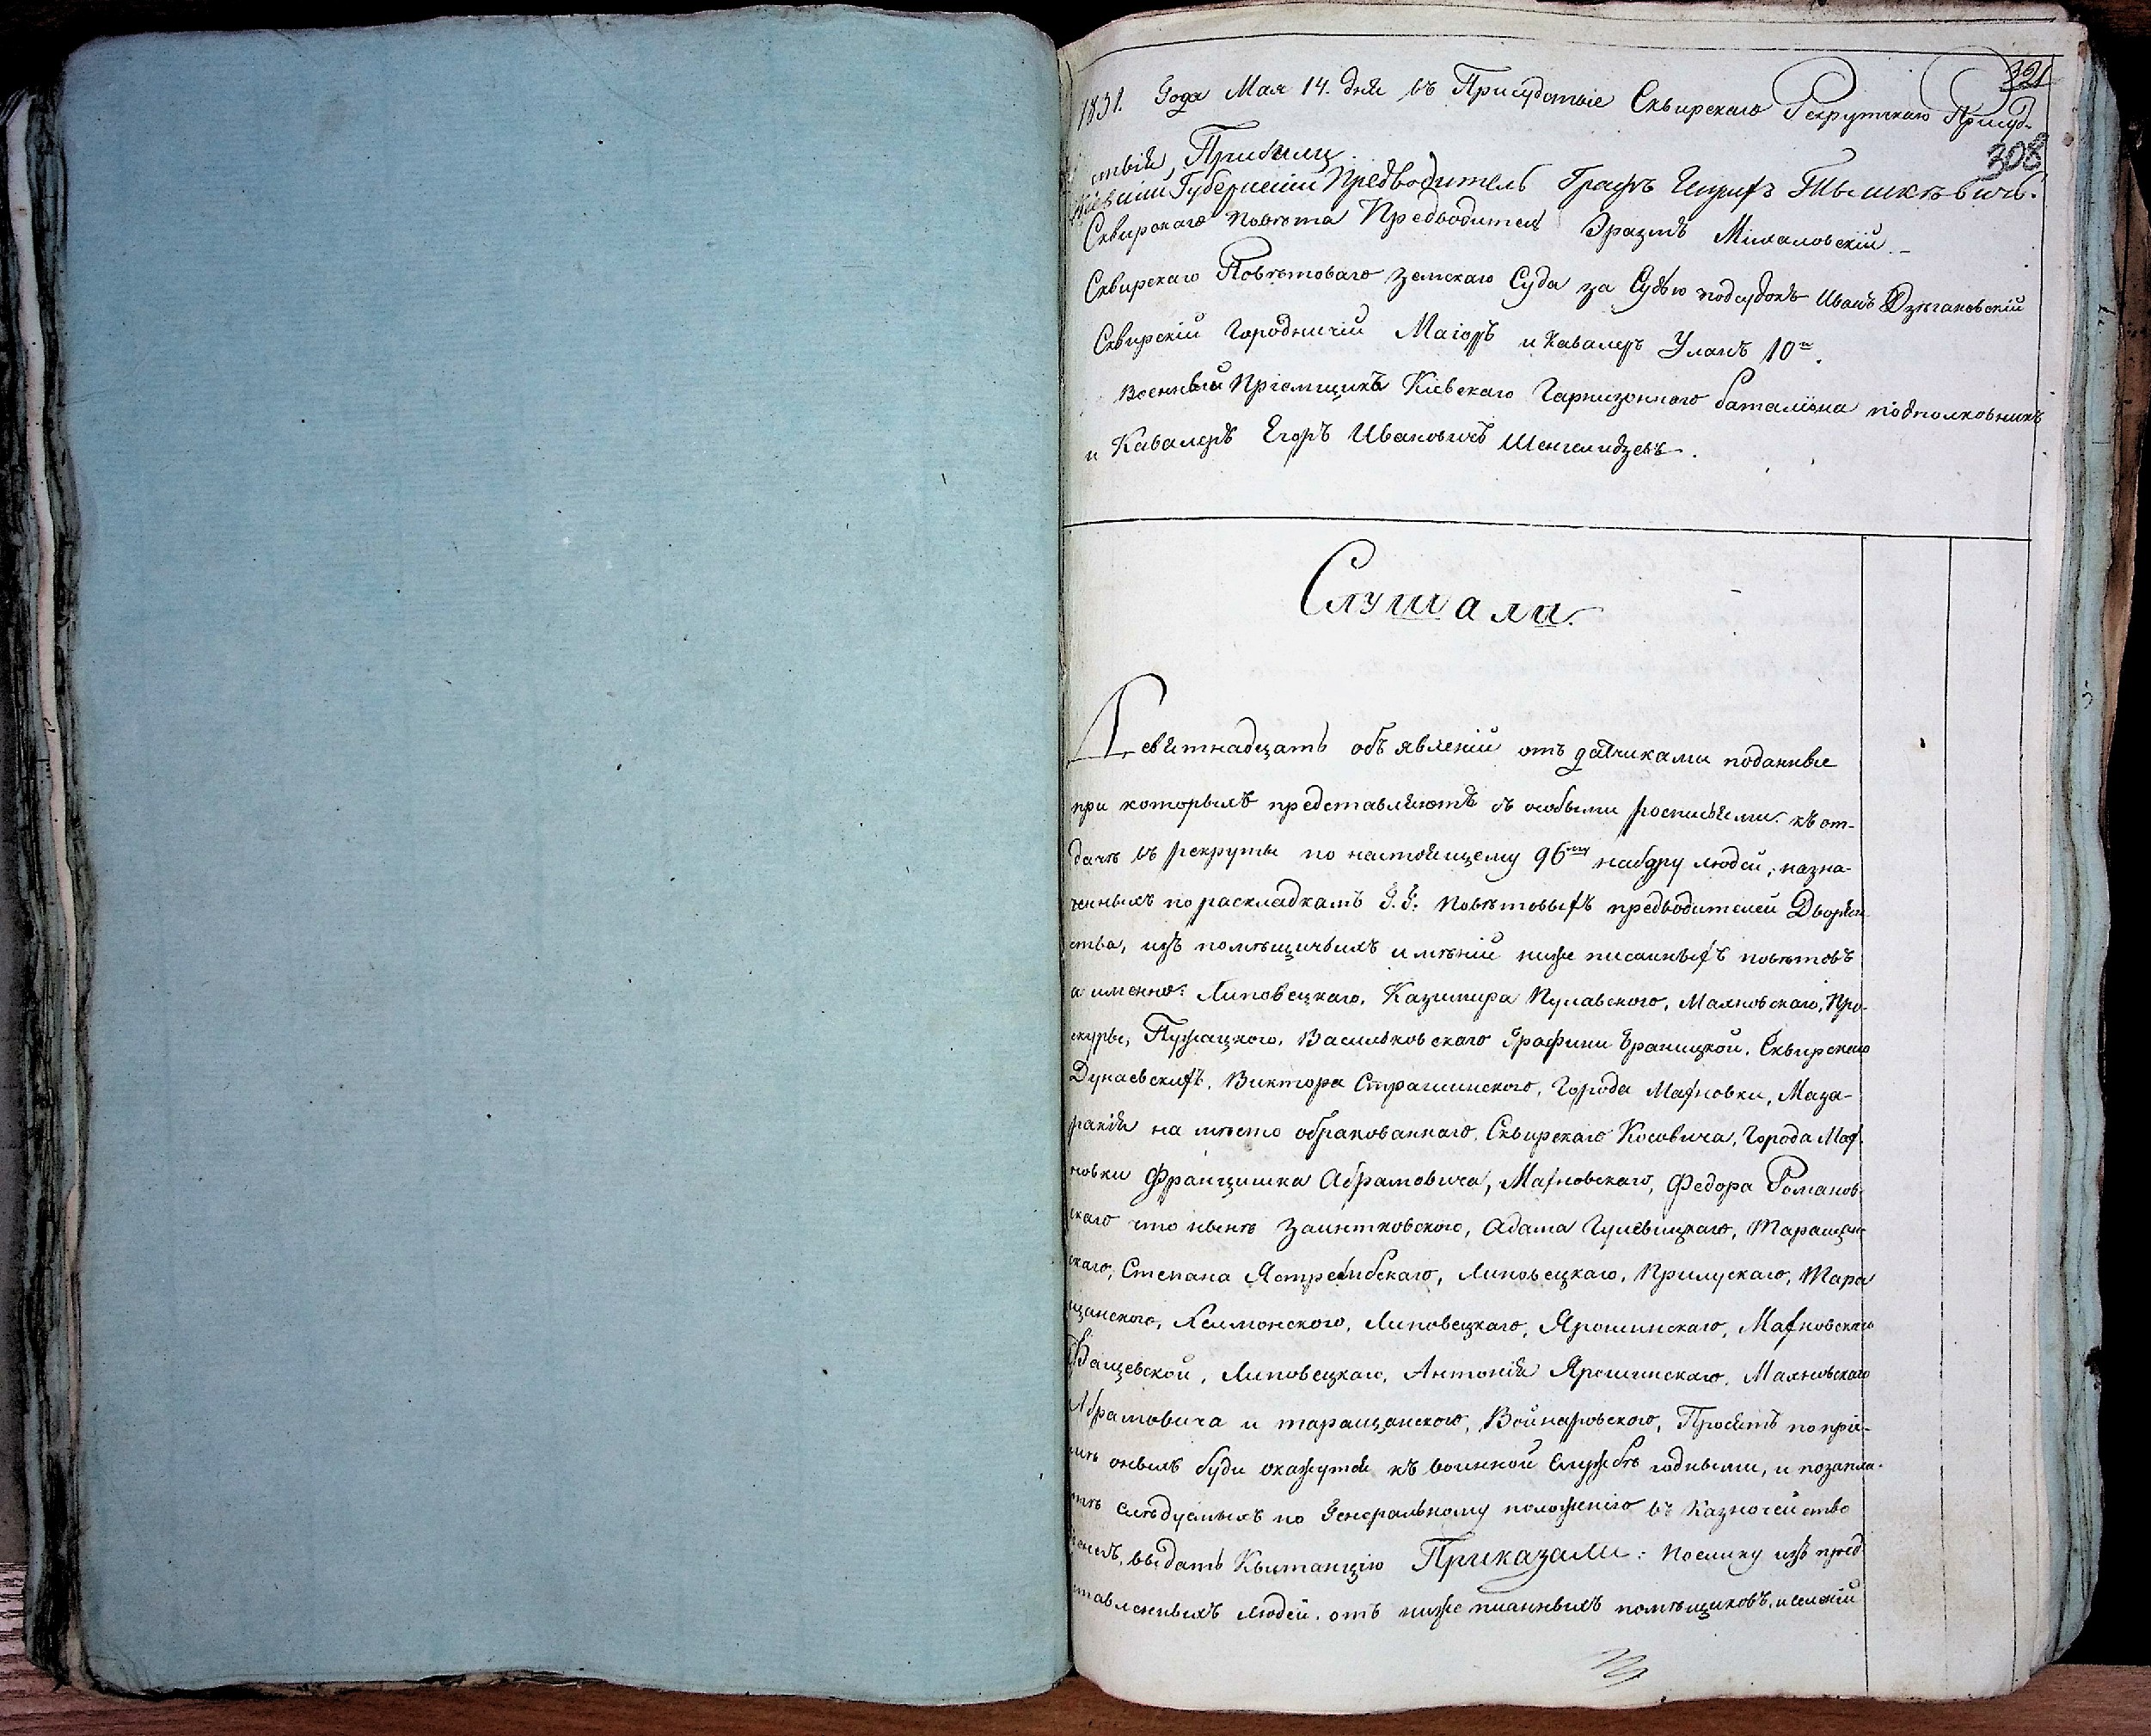 321
1831. Года Мая 14. дня въ Присудствіе Сквирскаго Рекрутскаго Присуд-
ствія, Прибыли
308
Кіевскій Губернскій Предводитель Графъ Генрихъ Тышкѣвичь.
Сквирскаго Повѣта Предводитель Эразмъ Міхаловскій.-
Сквирскаго Повѣтоваго Земскаго Суда за Судью подсудокъ Иванъ
Сквирскій Городничій Маіоръ и Кавалеръ Уланъ 10й.
Военный Пріемщикъ Кіевскаго Гарнизонного баталіона подполковникъ
и Кавалеръ Егоръ Ивановичъ
Слушали.
Девятнадцать объявленій отъ датчиками поданные
при которыхъ представляютъ съ особыми росписьями къ от-
дачѣ въ рекруты по настоящему 96му набору людей, назна-
ченныхъ по раскладкамъ Г.Г. Повѣтовыхъ предводителей Дворян-
ства, изъ помѣщичьихъ имѣній ниже писанныхъ повѣтовъ
а именно: Липовецкаго, Казимира Пулавского, Махновскаго, Про-
скуры, Васильковскаго Графини Браницкой, Сквирскаго
Дунаевскихъ, Виктора Страшинского, Города Махновки, Маза-
ракія на мѣсто обракованнаго, Сквирскаго Косовича, Города Мах-
новки Францишка Абрамовича, Махновскаго, Федора Романов-
скаго что нынѣ Адама Гулевицкаго, Таращан-
скаго, Степана Липовецкаго, Прилускаго, Тара
щанского, Липовецкаго, Ярошинскаго, Махновскаго
Фащевской, Липовецкаго, Антонія Ярошинскаго, Махновскаго
Абрамовича и таращанского, Войнаровского, Просятъ по прі-
имѣ оныхъ буди окажутся къ воинной службѣ годными, и позапла-
тѣ слѣдуемыхъ по Генеральному положенію въ Казначейство
денегъ, выдать Квитанцію Приказали: Поелику изъ пред
ставленныхъ людей, отъ ниже писанныхъ помѣщиковъ, и селеній